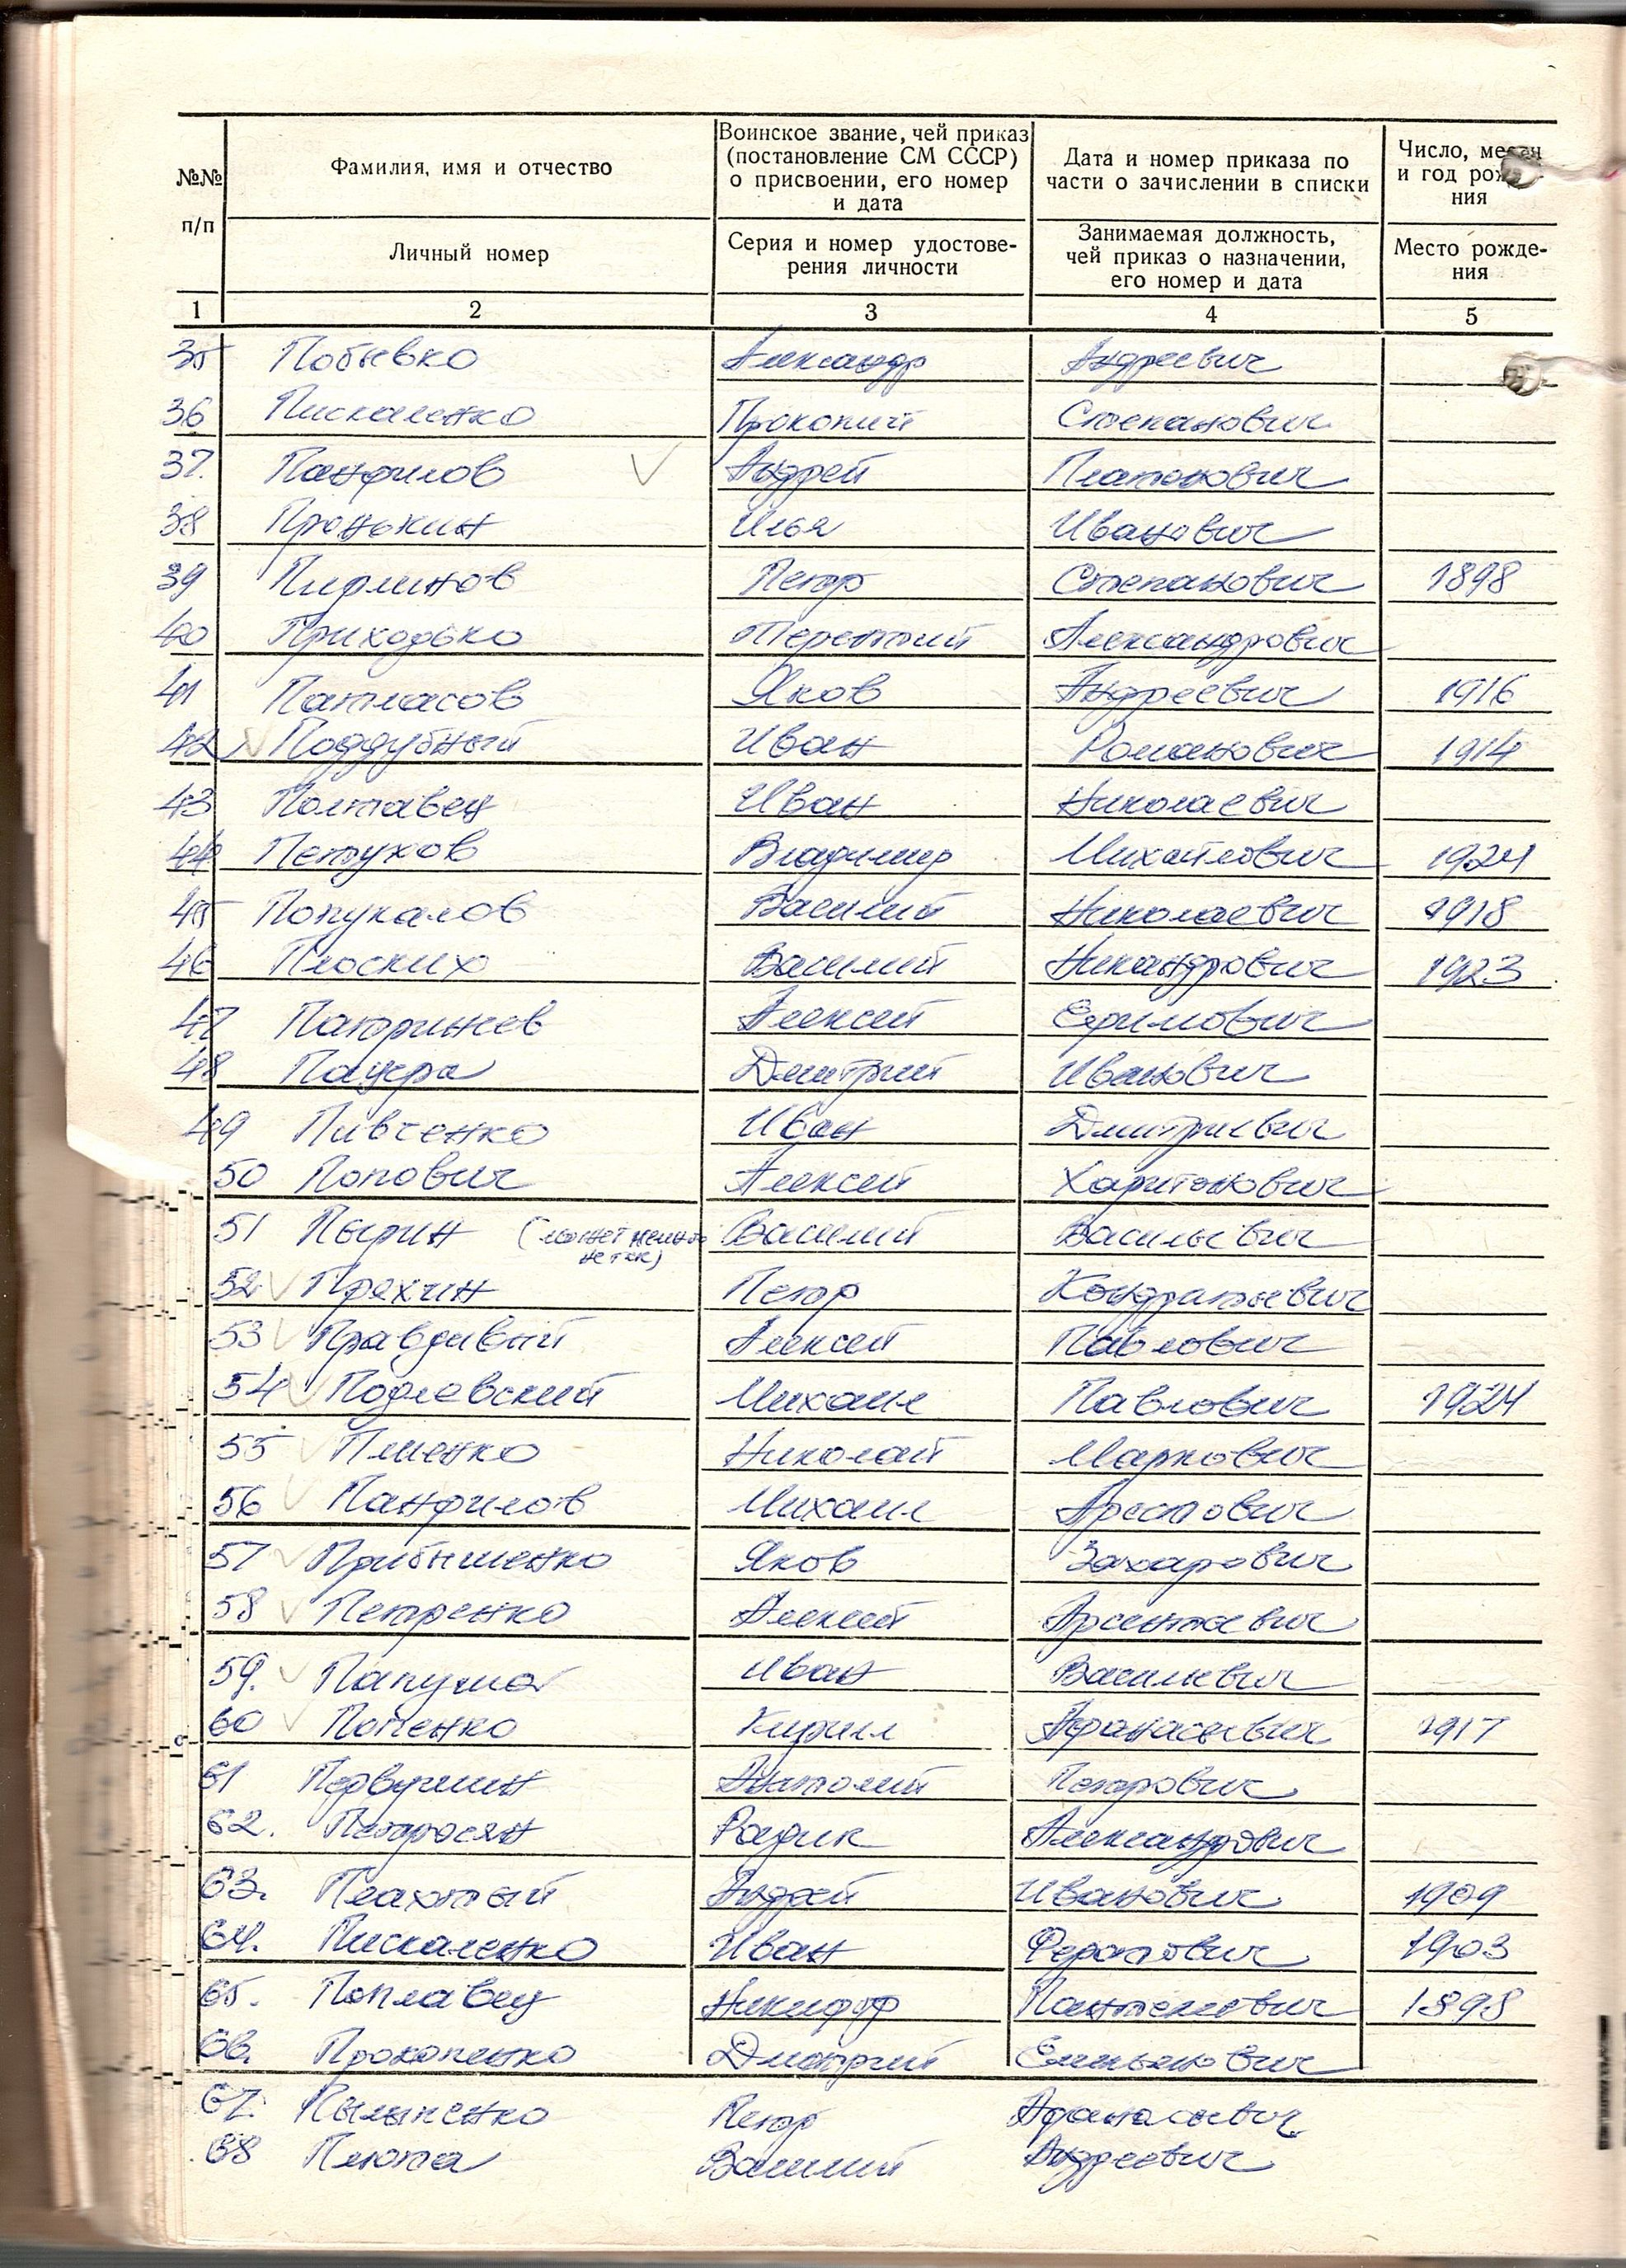 №№ п/п
Фамилия, имя и отчество
Личный номер
Воинское звание, чей приказ
(постановление СМ СССР)
о присвоении, его номер
и дата
Серия и номер удостове-
рения личности
Дата и номер приказа по
части о зачислении в списки
Занимаемая должность,
чей приказ о назначении,
его номер и дата
Число, месяц
и год рожде-
ния
Место рожде-
ния
1 2 3 4 5
35 Побывко Александр Андреевич
36 Пискаленко Прокопий Степанович
37. Панфилов Андрей Платонович
38 Пронькин Илья Иванович
39 Пирлинов Петр Степанович 1898
40 Приходько Терентий Александрович
41 Патласов Яков Андреевич 1916
42 Поддубный Иван Романович 1914
43 Полтавец Иван Николаевич
44 Петухов Владимир Михайлович 1924
45 Попукалов Василий Николаевич 1918
46 Плоских Василий Никандрович 1923
47 Патрижев Алексей Ефимович
48 Пацера Дмитрий Иванович
49 Пивченко Иван Дмитриевич
50 Попович Алексей Харитонович
51 Пырин (может не так) Василий Васильевич
52 Прохин Петр Кондратьевич
53 Правдивый Алексей Павлович
54 Подлевский Михаил Павлович 1924
55 Пменко Николай Маркович
56 Панфилов Михаил Арестович
57 Прибышенко Яков Захарович
58 Петренко Алексей Арсентьевич
59. Папуша Иван Васильевич
60 Попенко Кирилл Афанасьевич 1917
61 Первушин Анатолий Петрович
62. Петросян Радик Александрович
63. Плахотый Андрей Иванович 1909
64. Пискаленко Иван Ферапович 1903
65. Поплавец Никифор Пантелевич 1898
66. Прокопенко Дмитрий Емельянович
67. Пыльченко Петр Афанасьевич
68 Плюта Василий Андреевич